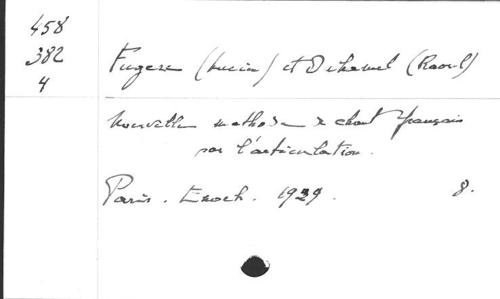 458
382
4
Fugère (Lucien) et Duhamel (Raoul)
Nouvelle méthode de chant français
par l'articulation.
Paris. Enoch. 1929. 8.